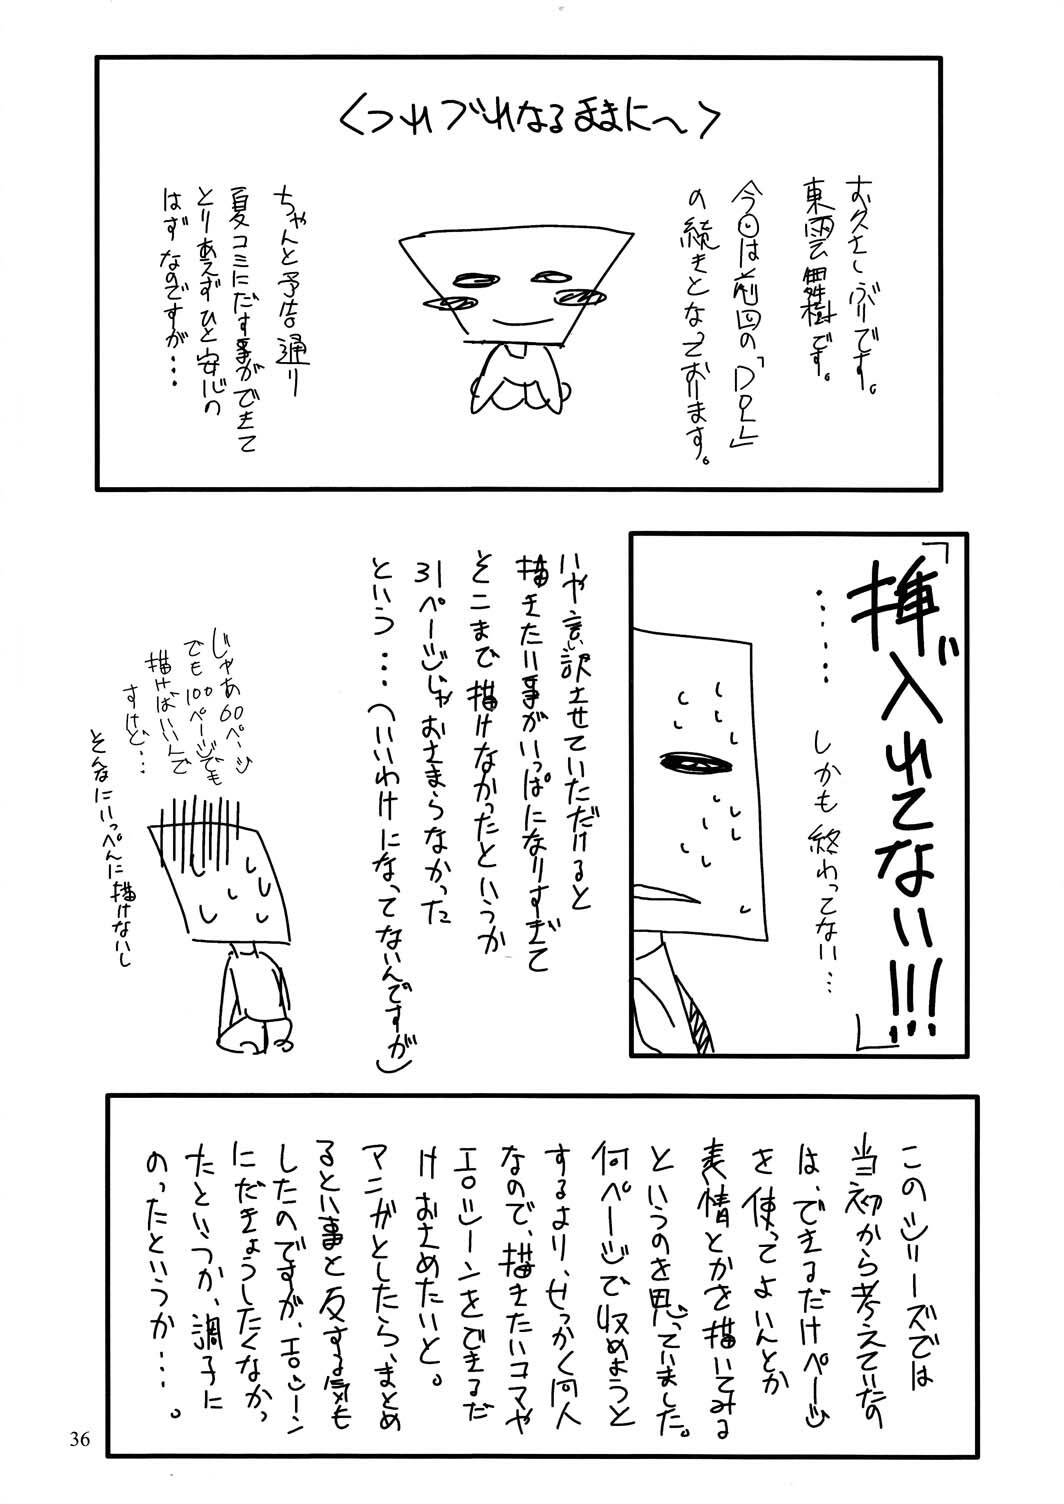 〈つれづれなるままに〜〉
お久さしぶりです。
東雲舞樹です。
今回は前回の「DOLL」
の続きとなっております。
ちゃんと予告通り
夏コミにだす事ができて
とりあえずひと安心の
はずなのですが…
「挿入れてない!!!」
……しかも終わってない…
いや言い訳させていただけると
描きたい事がいっぱいになりすぎて
そこまで描けなかったというか
31ページじゃおさまらなかった
という…（いいわけになってないんですが）
じゃあ60ページ
でも100ページでも
描けばいいんで
すけど…
そんなにいっぺんに描けないし
このシリーズでは
当初から考えていたの
は、できるだけページ
を使ってよいんとか
表情とかを描いてみる
というのを思っていました。
何ページで収めようと
するより、せっかく同人
なので、描きたいコマや
エロシーンをできるだ
けおさめたいと。
マンガとしたら、まとめ
るという事と反する気も
したのですが、エロシーン
にだきょうしたくなかっ
たというか、調子に
のったというか…。
36